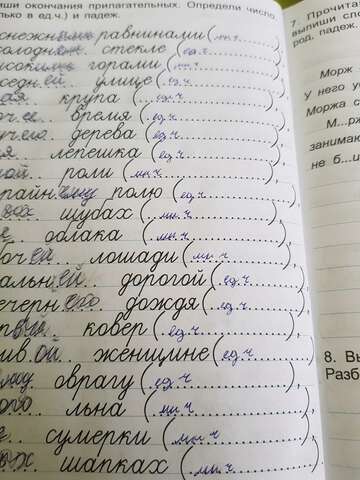 ...иши окончания прилагательных. Определи число
...лько в ед.ч.) и падеж.
...снежными равнинами (мн.ч.
...олодном стекле (ед.ч.
...ысокими горами (мн.ч.
...седней улице (ед.ч.
...ая крупа (ед.ч.
...очее время (ед.ч.
...учего дерева (ед.ч.
...я лепешка (ед.ч.
...ой роли (мн.ч
...райнему полю (ед.ч
...ых шубах (мн.ч.
...е облака (мн.ч.
...очей лошади (мн.ч.
...альней дорогой (ед.ч.
...ечернего дождя (ед.ч.
...ый ковер (ед.ч.
...ивой женщине (ед.ч
...ому оврагу (ед.ч
...ого льна (мн.ч
...е сумерки (мн.ч
...ых шапках (мн.ч
7. Прочита
выпиши сл
род, падеж.
Морж
У него ус
Моржа о
М...рж
занимаю
не б...и
8. Вы
Разб